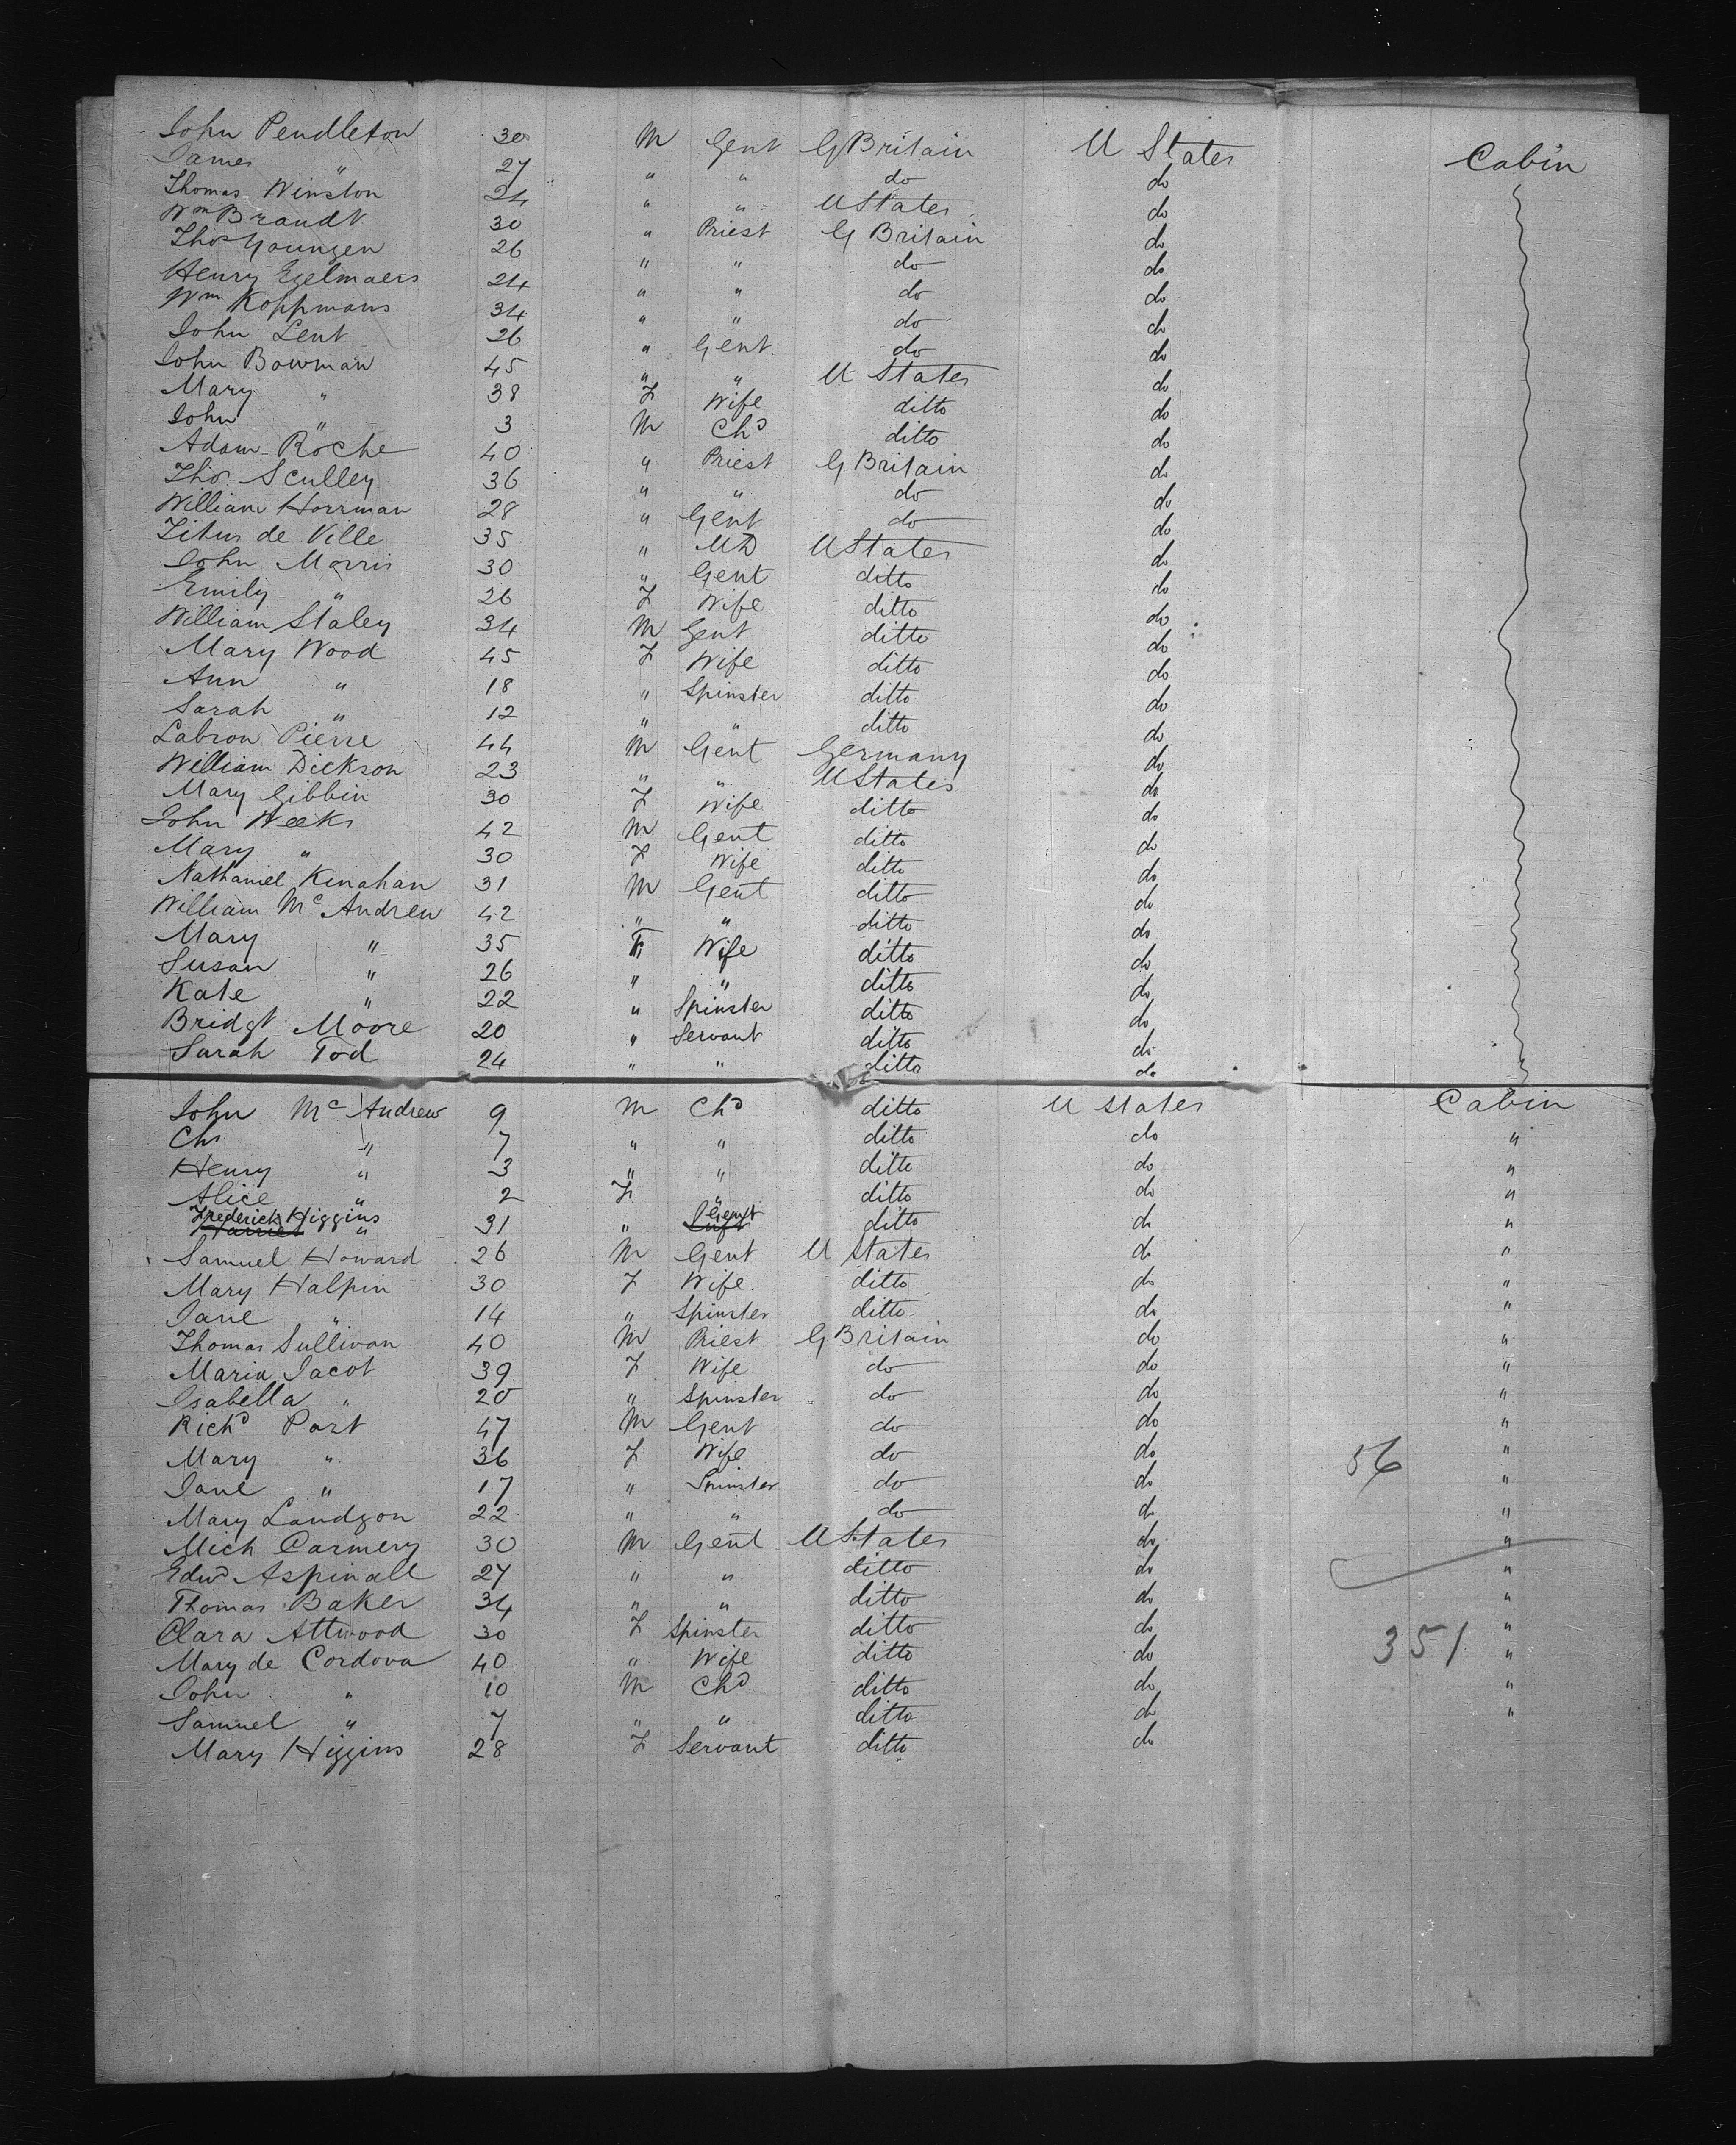 John Pendleton 30 M Gent G Britain U States Cabin
James " 27 " " do do
Thomas Winston 24 " " U States do
Wm Brandt 30 " Priest G Britain do
Thos Youngen 26 " " do do
Henry Egelmaers 24 " " do do
Wm Koppmans 34 " " do do
John Lent 26 " Gent do do
John Bowman 45 " " U States do
Mary " 38 F Wife ditto do
John " 3 M Chd ditto do
Adam Roche 40 " Priest G Britain do
Thos Sculley 36 " " do do
William Horrman 28 " Gent do do
Titus de Ville 35 " MD U States do
John Morris 30 " Gent ditto do
Emily " 26 F Wife ditto do
William Staley 34 M Gent ditto do
Mary Wood 45 F Wife ditto do
Ann " 18 " Spinster ditto do
Sarah " 12 " " ditto do
Labron Pierre 44 M Gent Germany do
William Dickson 23 " " U States do
Mary Gibbin 30 F Wife ditto do
John Weeks 42 M Gent ditto do
Mary " 30 F Wife ditto do
Nathaniel Kinahan 31 M Gent ditto do
William Mc Andrew 42 " " ditto do
Mary " 35 F Wife ditto do
Susan " 26 " " ditto do
Kate " 22 " Spinster ditto do
Bridgt Moore 20 " Servant ditto do
Sarah Tod 24 " " ditto do "
John Mc Andrew 9 M Chd ditto U States Cabin
Chs " 7 " " ditto do "
Henry " 3 " " ditto do "
Alice " 2 F " ditto do "
Frederick Higgins Gent
Harriet " 31 " ditto do "
Samuel Howard 26 M Gent U States do "
Mary Halpin 30 F Wife ditto do "
Jane " 14 " Spinster ditto do "
Thomas Sullivan 40 M Priest G Britain do "
Maria Jacot 39 F Wife do do "
Isabella " 20 " Spinster do do "
Richd Post 47 M Gent do do "
Mary " 36 F Wife do do 56 "
Jane " 17 " Spinster do do "
Mary Landgon 22 " " do do "
Mich Carmery 30 M Gent U States do "
Edwd Aspinall 27 " " ditto do "
Thomas Baker 34 " " ditto do "
Clara Attwood 30 F Spinster ditto do "
Mary de Cordova 40 " Wife ditto do 351 "
John " 10 M Chd ditto do "
Samuel " 7 " " ditto do "
Mary Higgins 28 F Servant ditto do